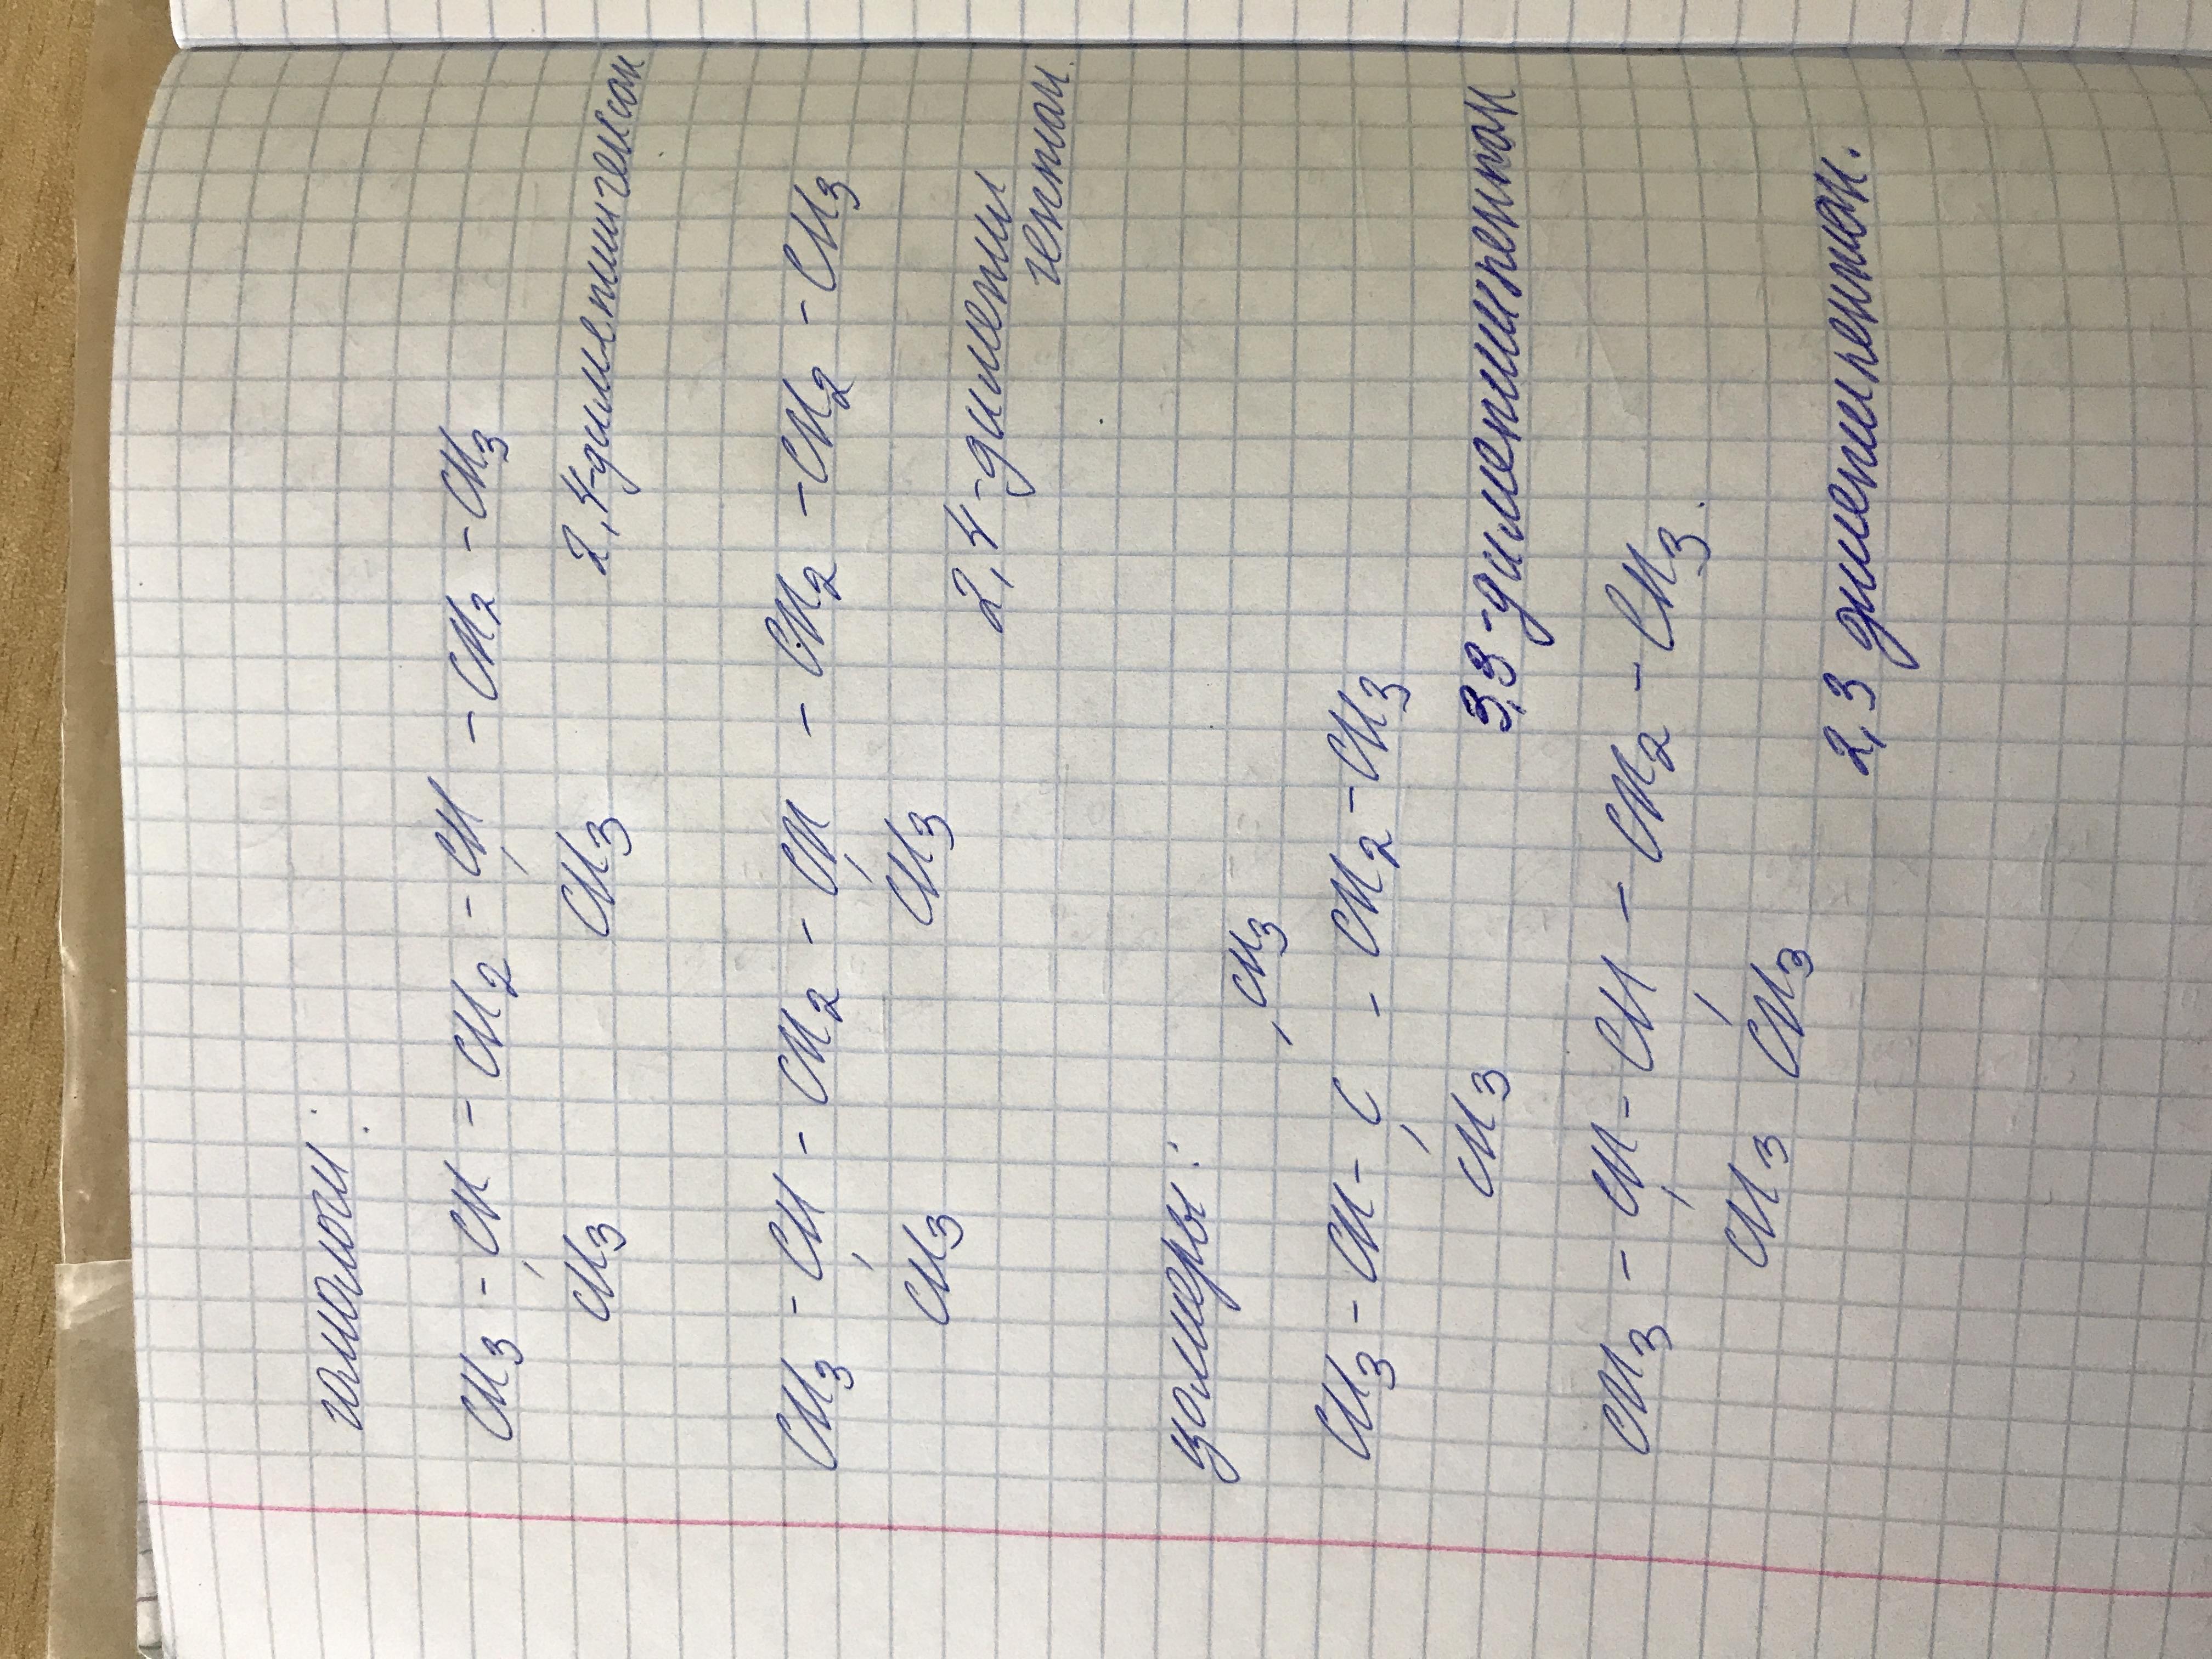 гомологи:
CH3 - CH - CH2 - CH - CH2 - CH3
CH3 CH3
2,4-диметилгексан
CH3 - CH - CH2 - CH - CH2 - CH2 - CH3
CH3 CH3
2,4-диметил
гептан.
изомеры:
CH3
CH3 - CH - C - CH2 - CH3
CH3
3,3-диметилпентан
CH3 - CH - CH - CH2 - CH3.
CH3 CH3
2,3 диметилпентан.